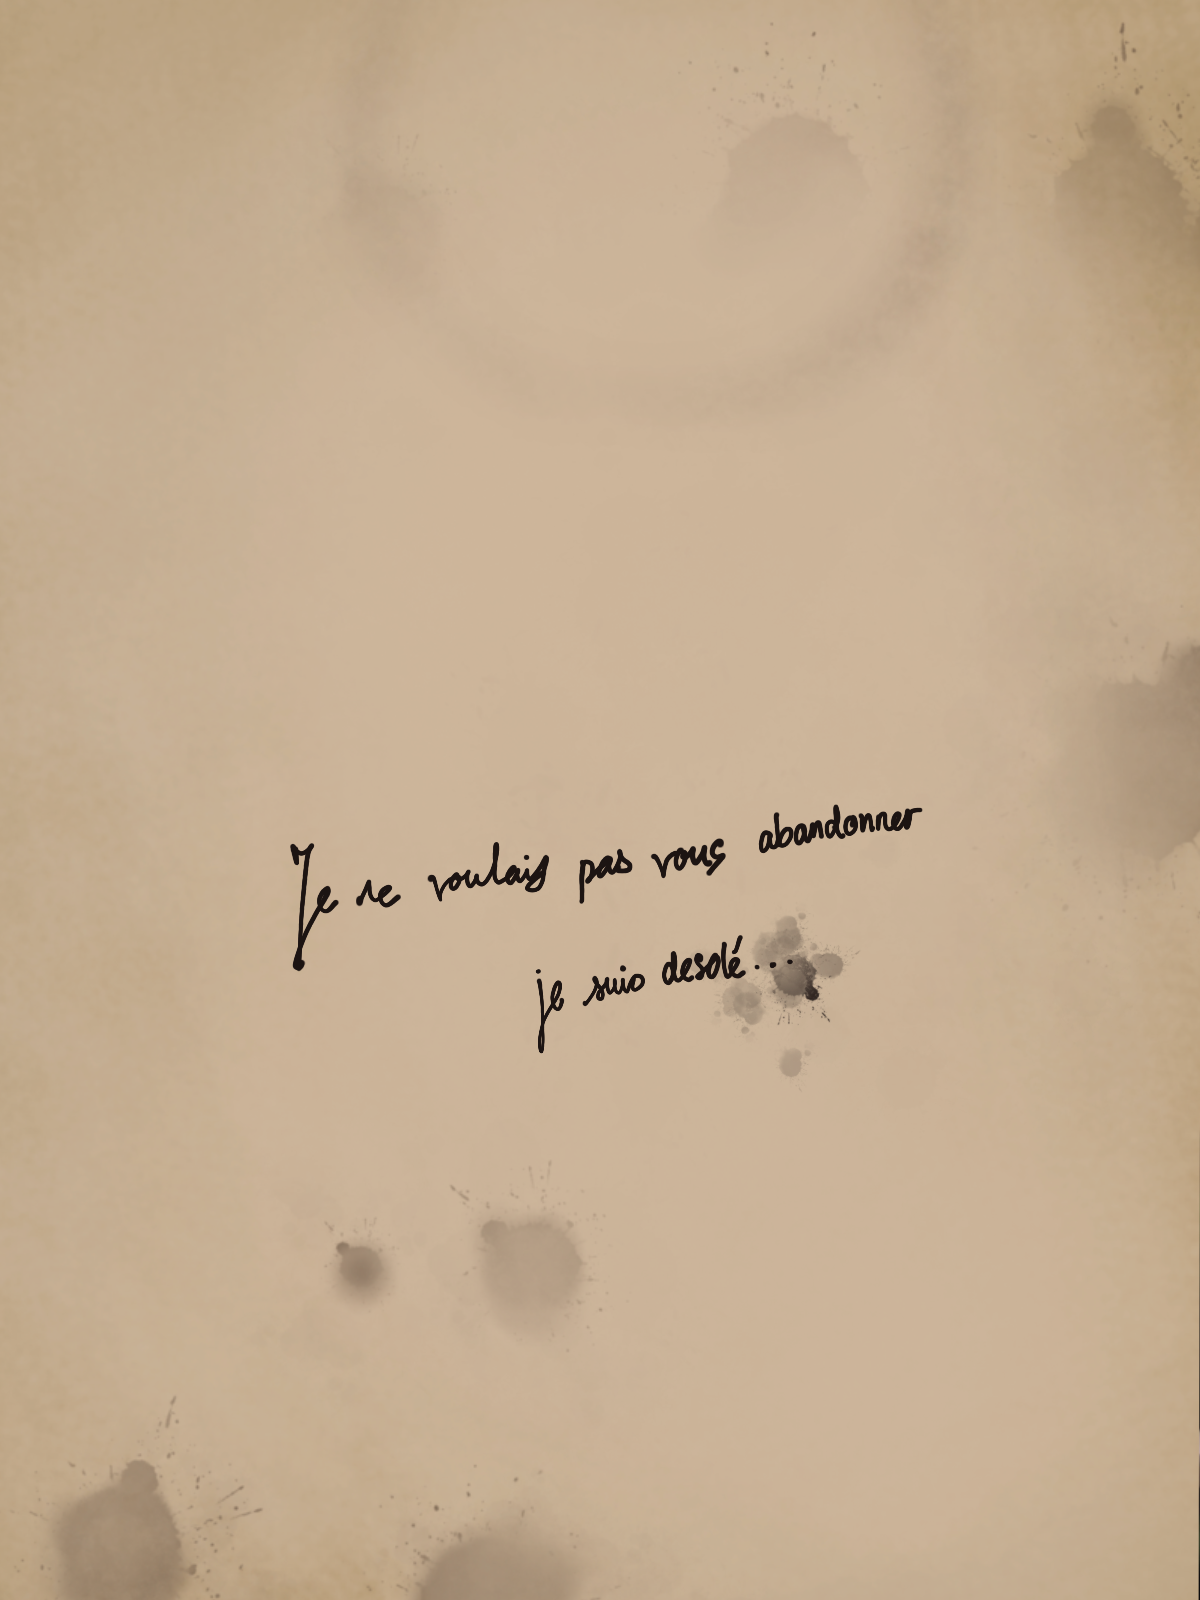 Je ne voulais pas vous abandonner
je suis desolé...